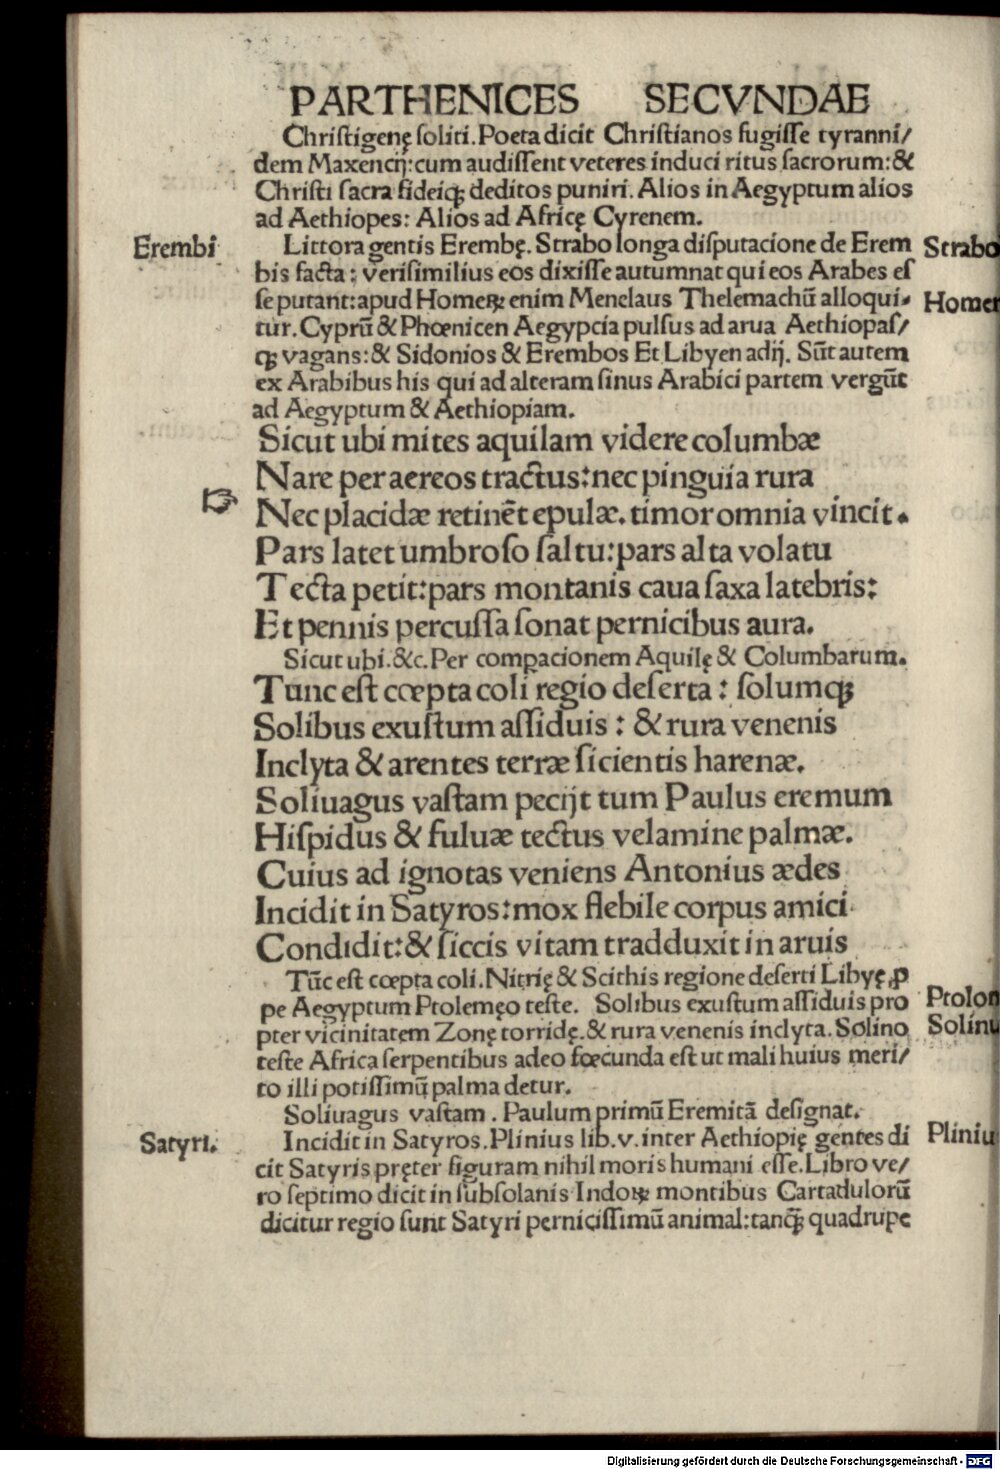 PARTHENICES SECVNDAE
Chriſtigenę ſoliti. Poeta dicit Chriſtianos fugiſſe tyranni/
dem Maxencij: cum audiſſent veteres induci ritus ſacrorum: &
Chriſti ſacra fideiqꝫ deditos puniri. Alios in Aegyptum alios
ad Aethiopes: Alios ad Africę Cyrenem.
Erembi
Littora gentis Erembę. Strabo longa diſputacione de Erem
Strabo
bis facta: veriſimilius eos dixiſſe autumnat qui eos Arabes eſ
ſe putant: apud Homeꝝ enim Menelaus Thelemachū alloqui
Homer
tur. Cyprū & Phœnicen Aegypcia pulſus ad arua Aethiopaſ/
qꝫ vagans: & Sidonios & Erembos Et Libyen adij. Sūt autem
ex Arabibus his qui ad alteram ſinus Arabici partem vergūt
ad Aegyptum & Aethiopiam.
Sicut ubi mites aquilam videre columbæ
Nare per aereos tractus: nec pinguia rura
☞ Nec placidæ retinēt epulæ. timor omnia vincit.
Pars latet umbroſo ſaltu: pars alta volatu
Tecta petit: pars montanis caua ſaxa latebris:
Et pennis percuſſa ſonat pernicibus aura.
Sicut ubi. &c. Per compacionem Aquilę & Columbarum.
Tunc eſt cœpta coli regio deſerta: ſolumqꝫ
Solibus exuſtum aſſiduis: & rura venenis
Inclyta & arentes terræ ſicientis harenæ.
Soliuagus vaſtam pecijt tum Paulus eremum
Hiſpidus & fuluæ tectus velamine palmæ.
Cuius ad ignotas veniens Antonius ædes
Incidit in Satyros: mox flebile corpus amici
Condidit: & ſiccis vitam tradduxit in aruis
Tūc eſt cœpta coli. Nitrię & Scithis regione deſerti Libyę ꝓ
pe Aegyptum Ptolemęo teſte. Solibus exuſtum aſſiduis pro
Ptolom
pter vicinitatem Zonę torridę. & rura venenis inclyta. Solino
Solinu
teſte Africa ſerpentibus adeo fœcunda eſt ut mali huius meri/
to illi potiſſimū palma detur.
Soliuagus vaſtam. Paulum primū Eremitā deſignat.
Satyri.
Incidit in Satyros. Plinius lib. v. inter Aethiopię gentes di
Pliniu
cit Satyris pręter figuram nihil moris humani eſſe. Libro ve/
ro ſeptimo dicit in ſubſolanis Indoꝝ montibus Cartadulorū
dicitur regio ſunt Satyri perniciſſimū animal: tanqꝫ̄ quadrupe
Digitalisierung gefördert durch die Deutsche Forschungsgemeinschaft - DFG